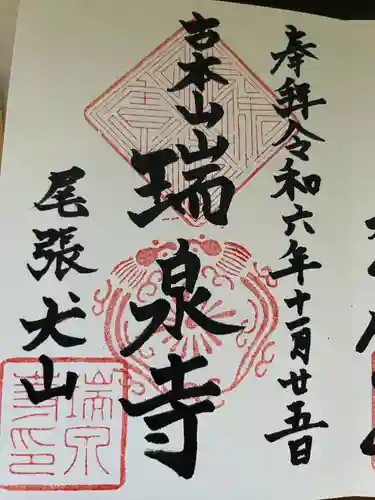 奉拝令和六年十一月廿五日
青木山瑞泉寺
尾張犬山
瑞泉寺印